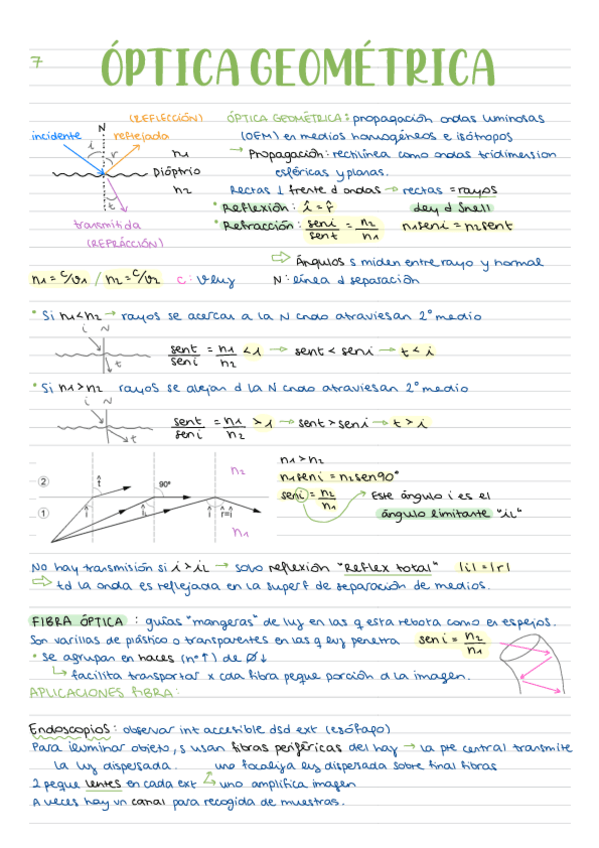 7
ÓPTICA GEOMÉTRICA
(REFLECCIÓN)
incidente N reflejada
i r
n1
Dióptrio
n2
t
transmitida
(REFRACCIÓN)
ÓPTICA GEOMÉTRICA: propagación ondas luminosas
(OEM) en medios homogéneos e isótropos
→ Propagación: rectilínea como ondas tridimension
esféricas y planas.
Rectas ⊥ frente d ondas → rectas = rayos
* Reflexión: î = r̂ ley d Snell
* Refracción: seni/sent = n2/n1 n1seni = n2sent
⇨ Ángulos s miden entre rayo y normal
n1 = c/v1 / n2 = c/v2 c: vluz N: línea d separación
* Si n1<n2 → rayos se acercan a la N cndo atraviesan 2º medio
i N
t
sent/seni = n1/n2 <1 → sent < seni → t < i
* Si n1>n2 rayos se alejan d la N cndo atraviesan 2º medio
i N
t
sent/seni = n1/n2 >1 → sent > seni → t > i
② t̂ 90° n2
① î îL î r̂=î n1
n1>n2
n1seni = n2sen90°
seni = n2/n1 → Este ángulo i es el
ángulo limitante "iL"
No hay transmisión si i > iL → solo reflexión "Reflex total" |i| = |r|
⇨ td la onda es reflejada en la superf de separación de medios.
FIBRA ÓPTICA: guías "mangeras" de luz en las q esta rebota como en espejos.
Son varillas de plástico o transparentes en las q luz penetra seni = n2/n1
* Se agrupan en haces (nº↑) de Ø↓
↳ facilita transportar x cda fibra pegue porción d la imagen.
APLICACIONES FIBRA:
Endoscopios: observar int accesible dsd ext (esófago)
Para iluminar objeto, s usan fibras periféricas del haz → la pte central transmite
la luz dispersada. uno focaliza luz dispersada sobre final fibras
2 pegue lentes en cada ext ↳ uno amplifica imagen
A veces hay un canal para recogida de muestras.